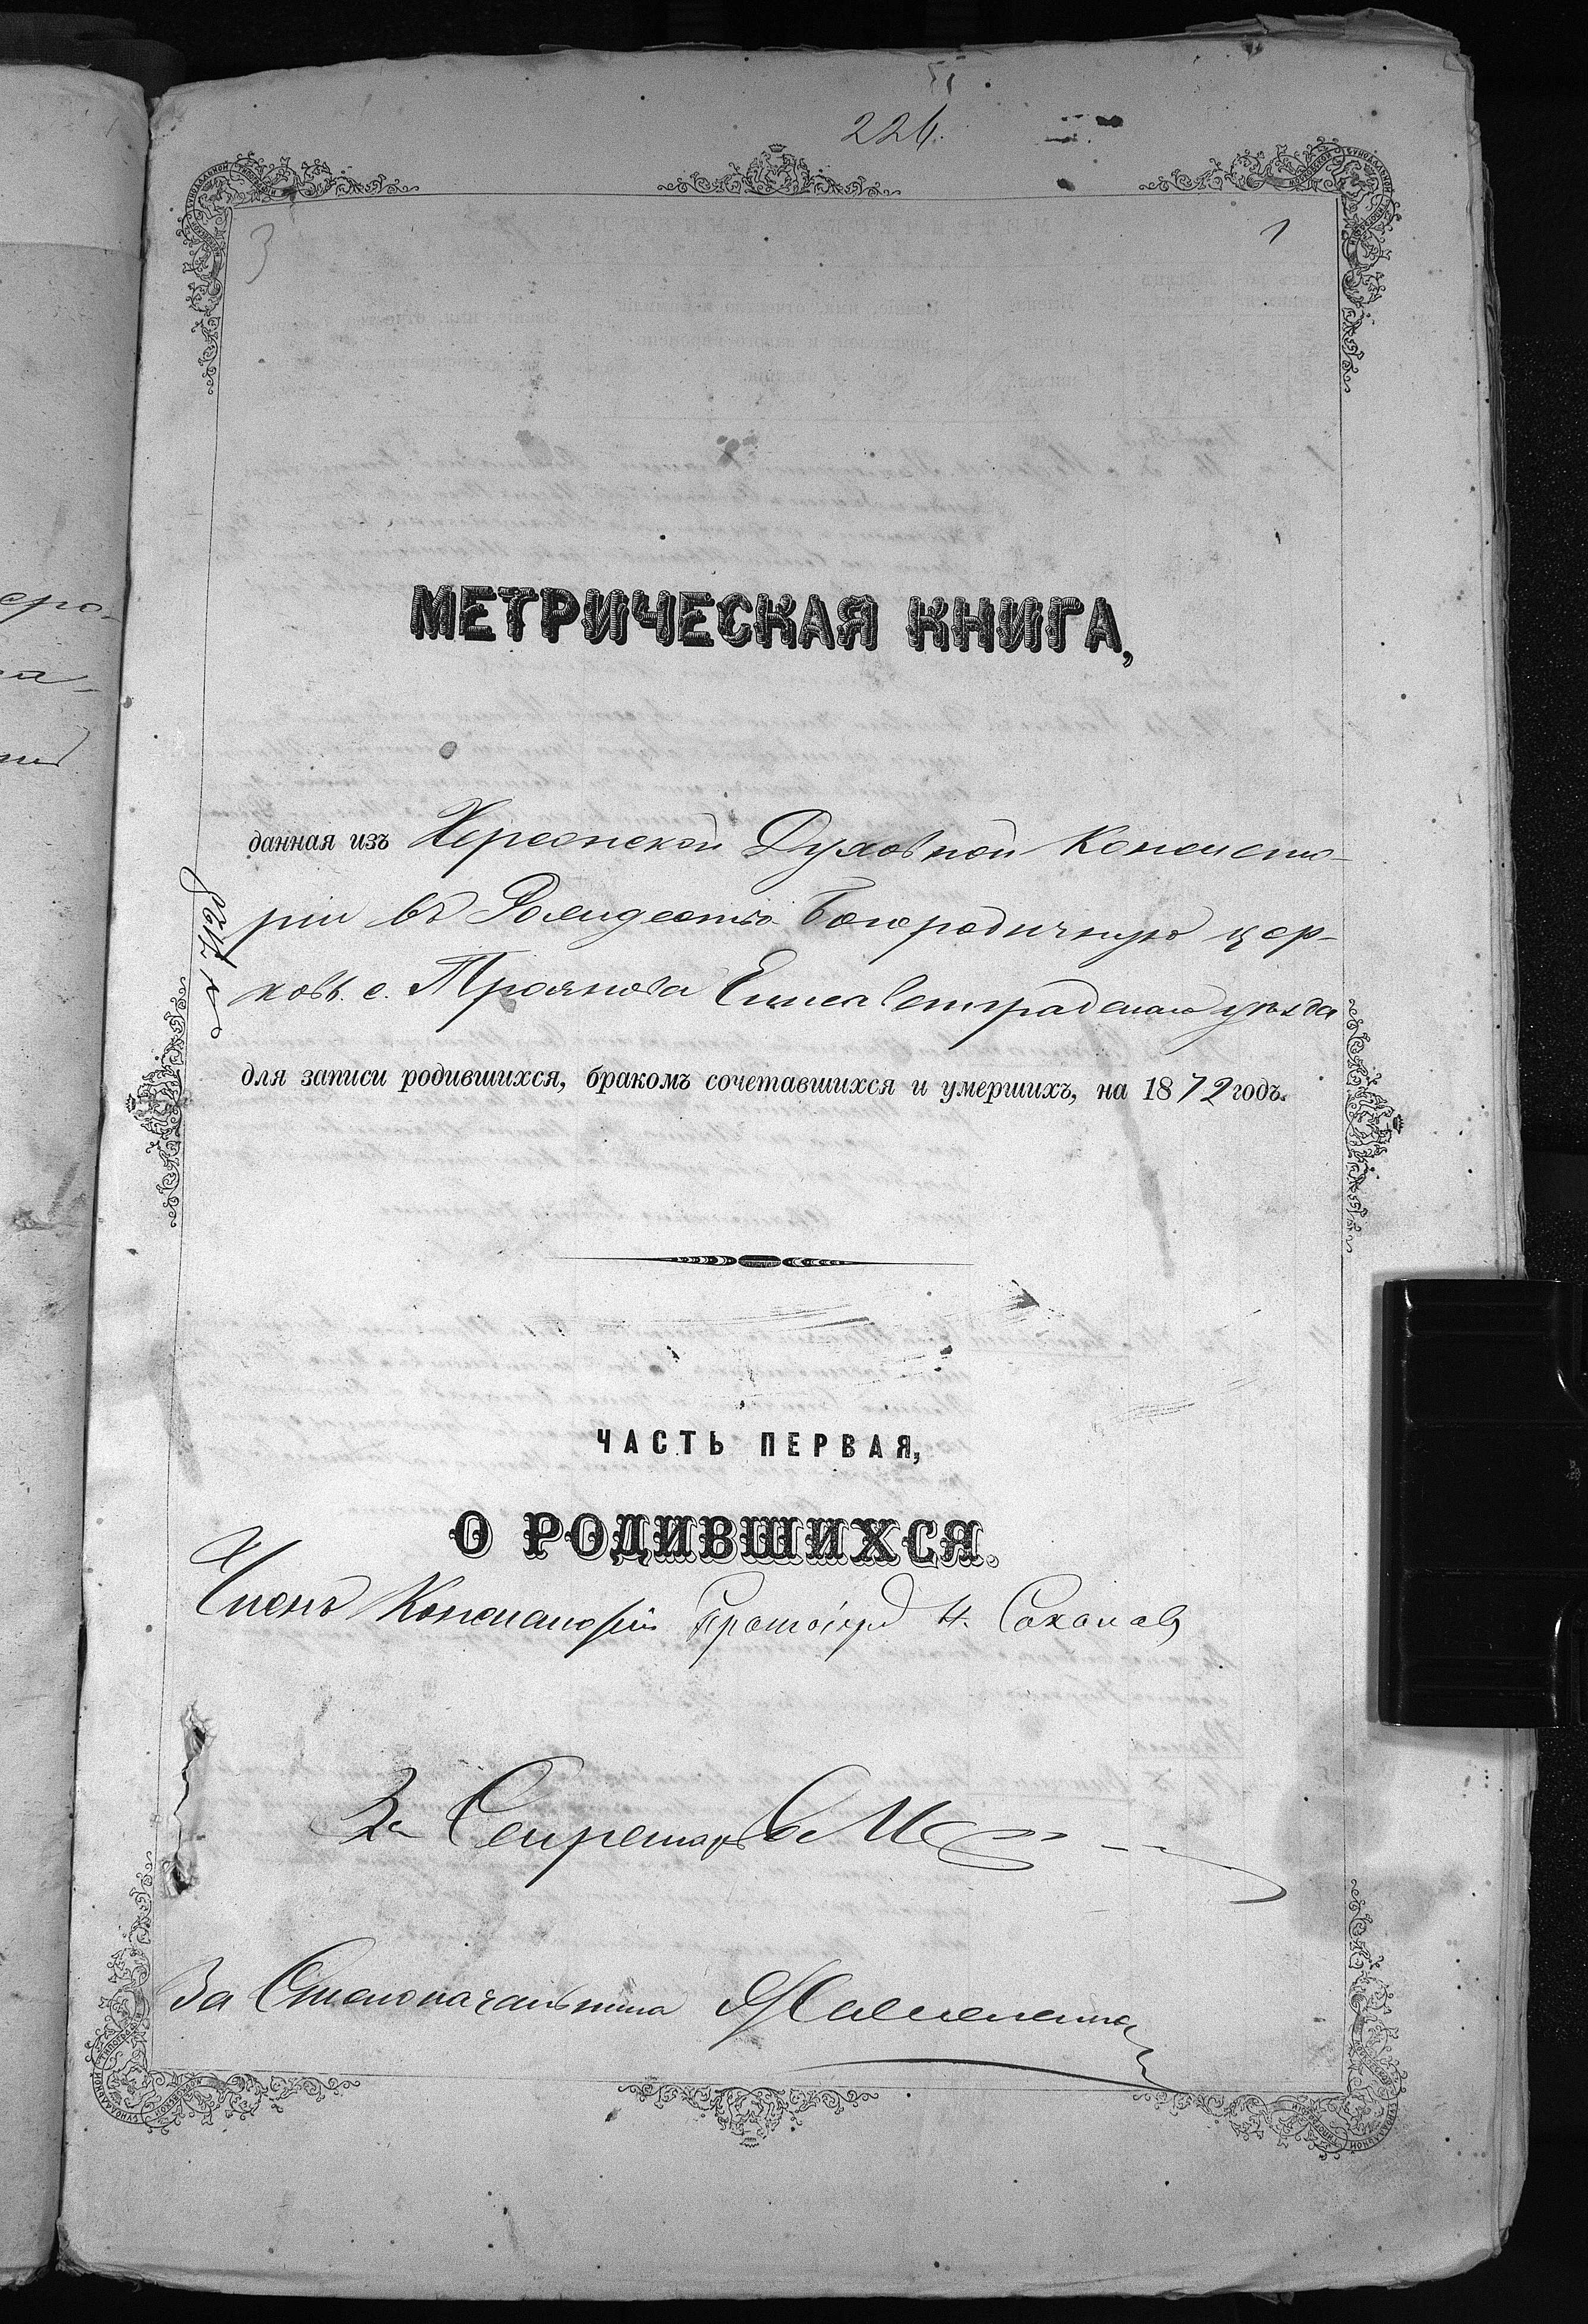 226.
3
1
МЕТРИЧЕСКАЯ КНИГА,
данная изъ Херсонской Духовной Консисто-
ріи въ Рождество Богородичную цер-
ковь с. Троянова Елисаветградскаго уѣзда
для записи родившихся, бракомъ сочетавшихся и умершихъ, на 1872 годъ.
ЧАСТЬ ПЕРВАЯ,
О РОДИВШИХСЯ.
Членъ Консисторіи Протоіер
За Секретаря
За Столоначальника